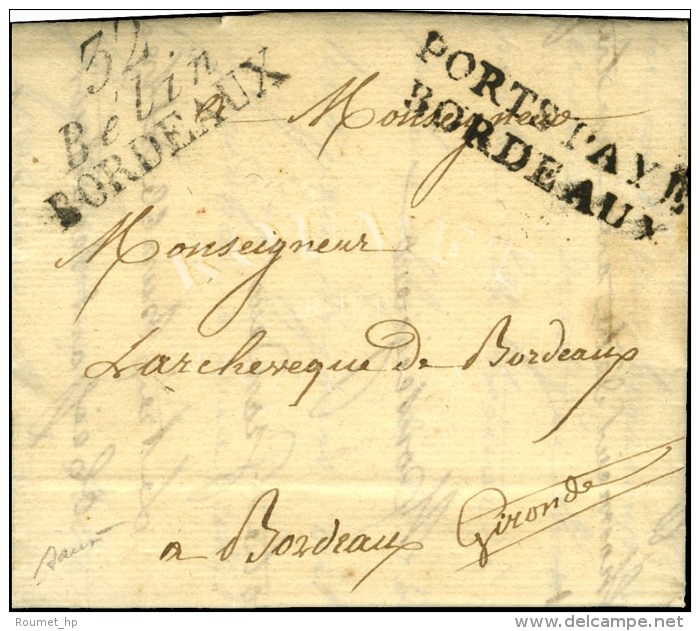 32
Bélin
BORDEAUX
PORTS PAYE
BORDEAUX
a Monseigneur
Monseigneur
Larcheveque de Bordeaux
a Bordeaux Gironde
Roumet_hp
www.delcampe.net